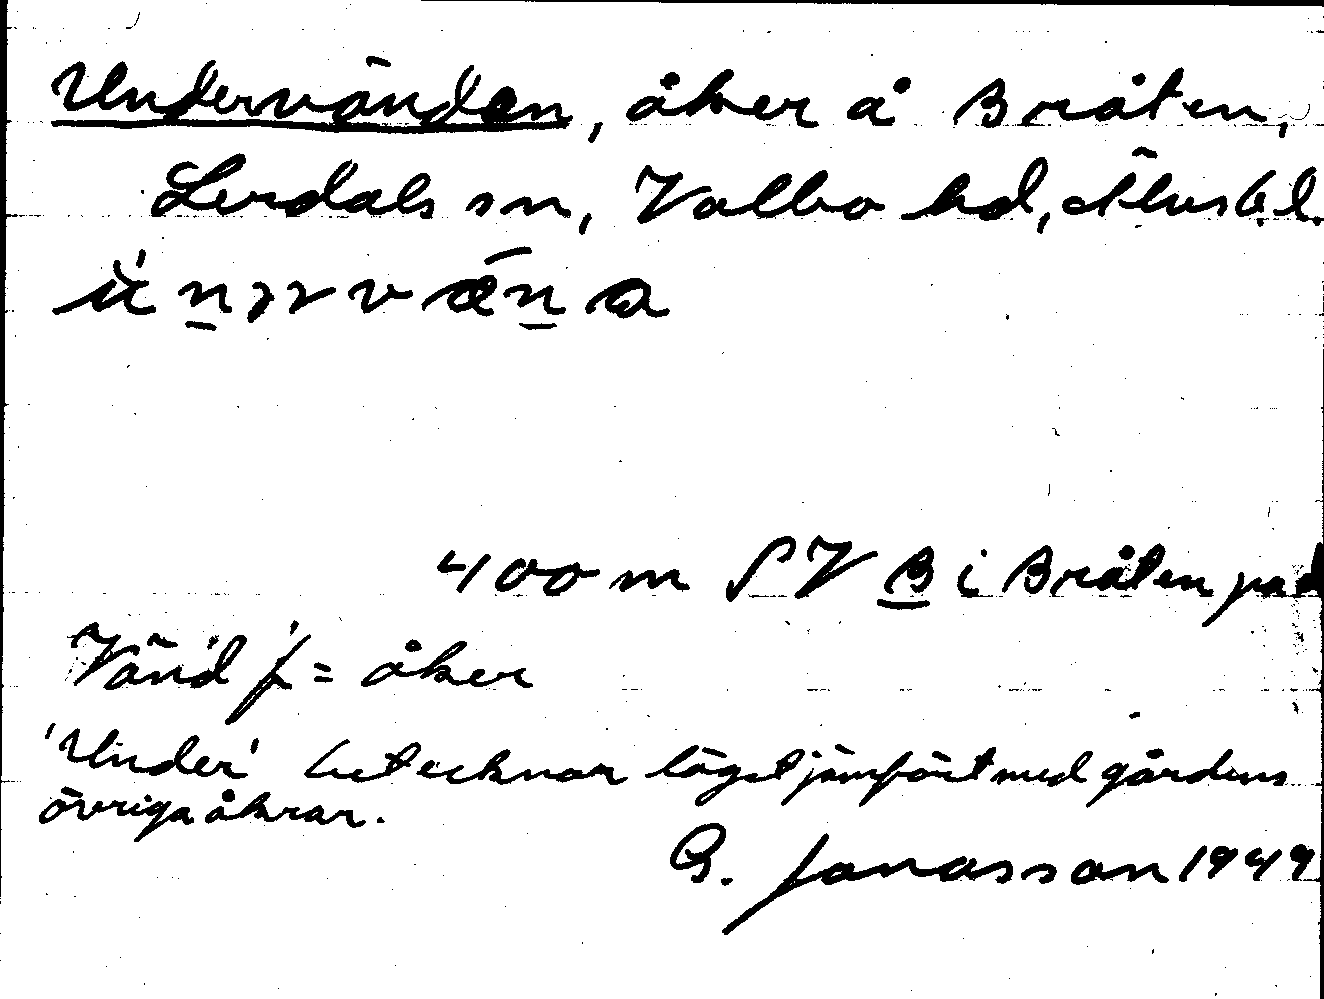 Undervänden, åker å Bråten,
Lerdals sn, Valbo hd, Älvsb. l.
400 m SV B i Bråten på d
Vänd f. = åker
'Under' betecknar lägst jämfört med gårdens
övriga åkrar.
G. Jonasson 1949